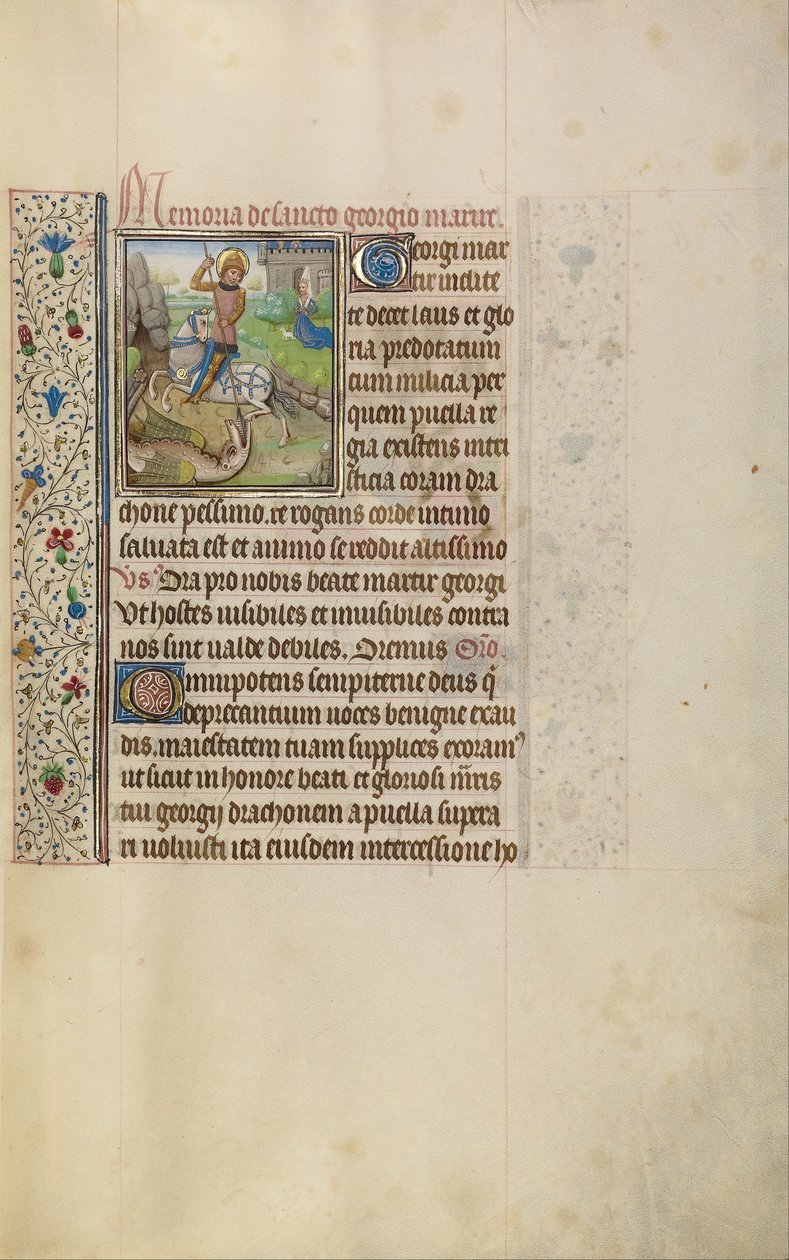 Memoria de sancto georgio martire.
Georgi mar
tir inclite
te decet laus et glo
ria predotatum
cum milicia per
quem puella re
gia existens intri
sticia coram dra
chone pessimo. te rogans corde intimo
saluata est et animo se reddit altissimo
Vs Ora pro nobis beate martir georgi
Vt hostes uisibiles et inuisibiles contra
nos sint ualde debiles. Oremus Oro.
Omnipotens sempiterne deus q̄
deprecantium uoces benigne exau
dis. maiestatem tuam supplices exoram⁹
ut sicut in honore beati et gloriosi mr̄is
tui georgij drachonem a puella supera
ri uoluisti ita eiusdem intercessione ho